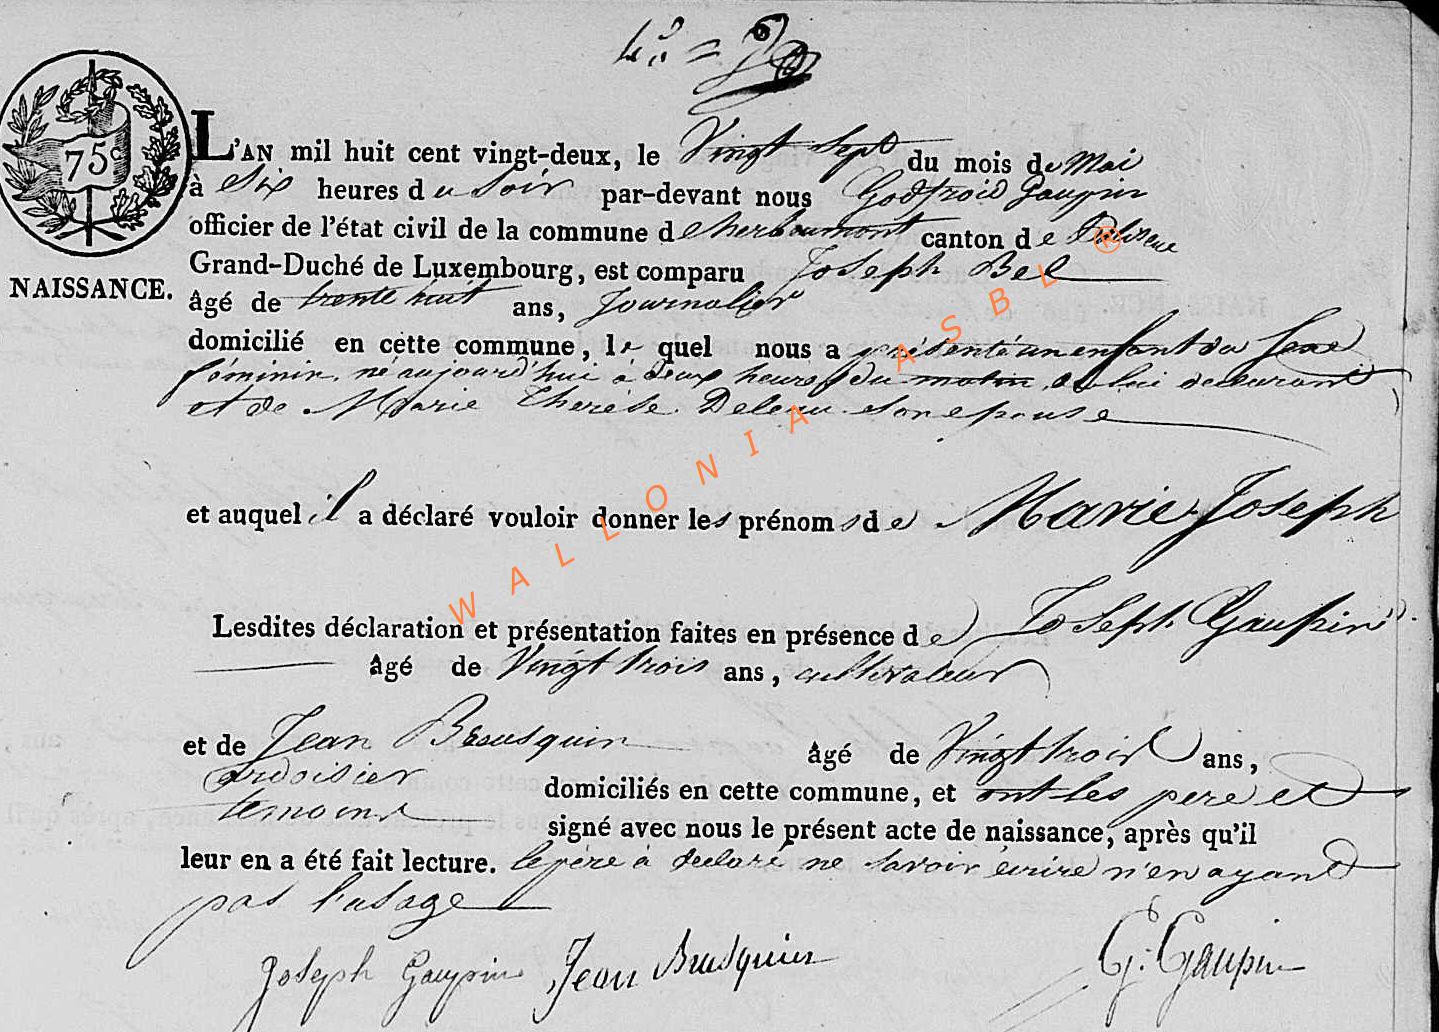 75c
NAISSANCE.
L'AN mil huit cent vingt-deux, le Vingt Sept du mois de Mai
à Six heures du Soir par-devant nous Godfroid Gaupin
officier de l'état civil de la commune d'herbeumont canton de
Grand-Duché de Luxembourg, est comparu Joseph Bel
âgé de trente huit ans, Journalier
domicilié en cette commune, lequel nous a présenté un enfant du Sexe
féminin, né aujourd'hui à deux heures du matin, de lui déclarant
et de Marie Therèse son epouse
et auquel il a déclaré vouloir donner les prénoms de Marie Joseph
Lesdites déclaration et présentation faites en présence de Joseph Gaupin
âgé de Vingt trois ans, cultivateur
et de Jean Brusquin âgé de Vingt trois ans,
ardoisier domiciliés en cette commune, et ont les pere et
temoins signé avec nous le présent acte de naissance, après qu'il
leur en a été fait lecture. le père à declaré ne savoir écrire n'en ayant
pas l'usage
Joseph Gaupin Jean Brusquin G. Gaupin
WALLONIA ASBL ®